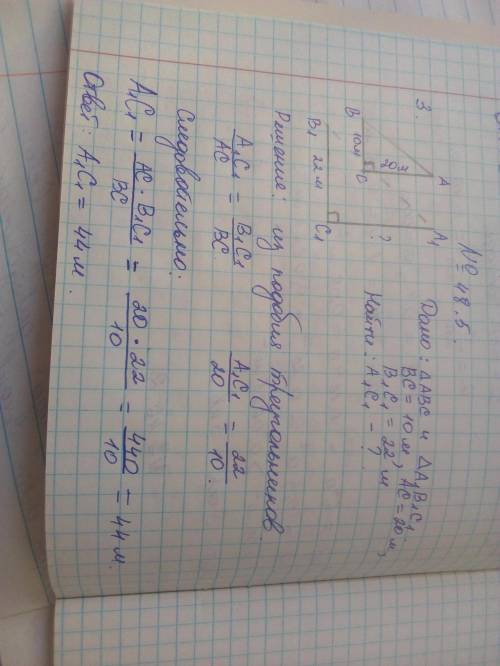 № 48.5.
3.
Дано: ΔABC и ΔA₁B₁C₁
BC = 10 м, AC = 20 м,
B₁C₁ = 22 м
Найти: A₁C₁ - ?
A
A₁
20 м
B 10 м C
?
B₁ 22 м C₁
Решение: из подобия треугольников
A₁C₁/AC = B₁C₁/BC A₁C₁/20 = 22/10.
Следовательно:
A₁C₁ = AC · B₁C₁/BC = 20 · 22/10 = 440/10 = 44 м.
Ответ: A₁C₁ = 44 м.